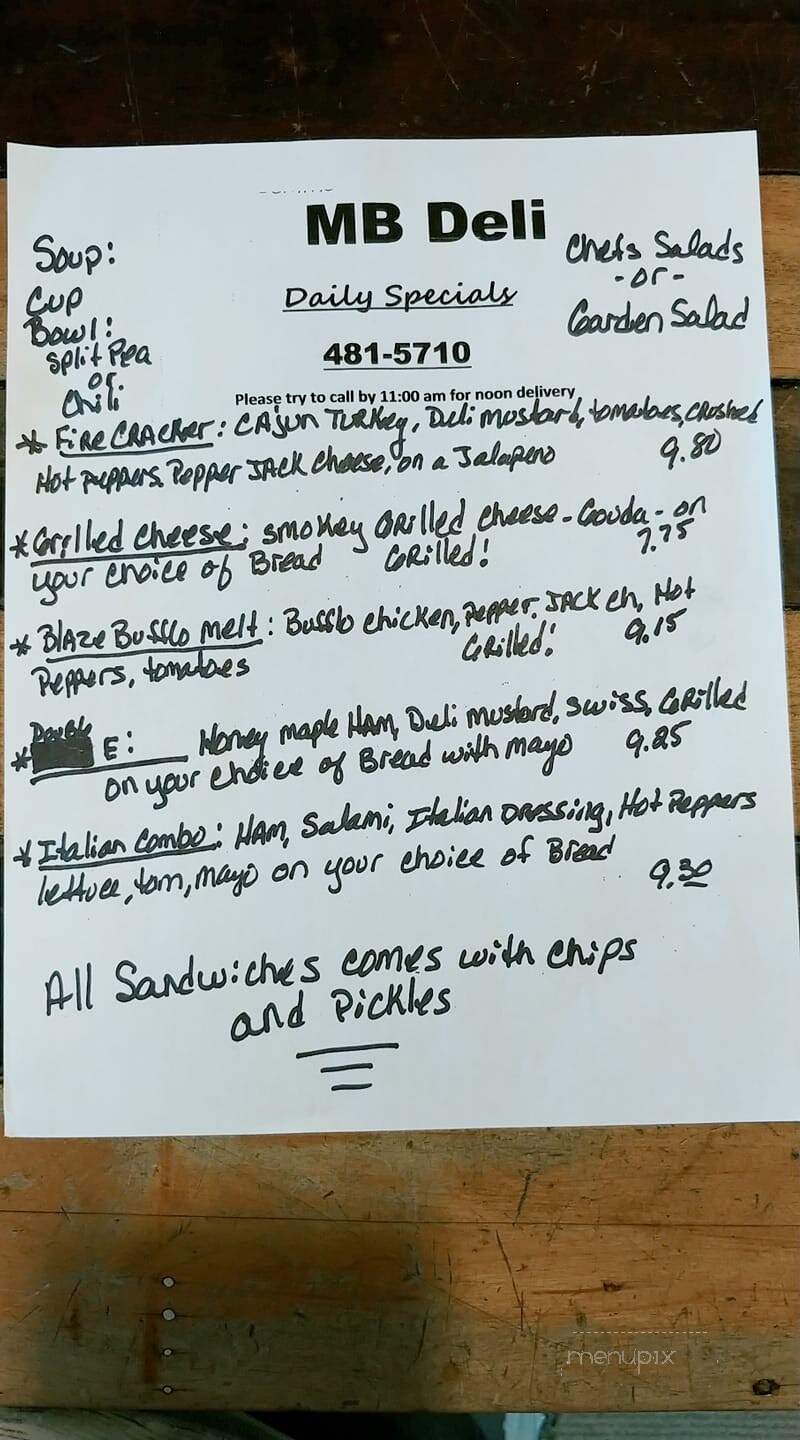 MB Deli
Soup:
Cup
Bowl:
Split Pea
or
Chili
Daily Specials
481-5710
Please try to call by 11:00 am for noon delivery
Chefs Salads
- or -
Garden Salad
* Fire CRACker: CAjun Turkey, Deli mustard, tomatoes, crushed
Hot peppers. Pepper JACK cheese, on a Jalapeno 9.80
* Grilled Cheese: Smokey Grilled Cheese - Gouda - on
your choice of Bread Grilled! 7.75
* Blaze Bufflo melt: Bufflo chicken, pepper JACK ch, Hot
Peppers, tomatoes Grilled! 9.15
Double
* E: Honey maple HAM, Deli mustard, swiss, Grilled
on your choice of Bread with mayo 9.25
* Italian Combo: HAM, Salami, Italian Dressing, Hot Peppers
lettuce, tom, mayo on your choice of Bread
9.30
All Sandwiches comes with chips
and Pickles
menupix